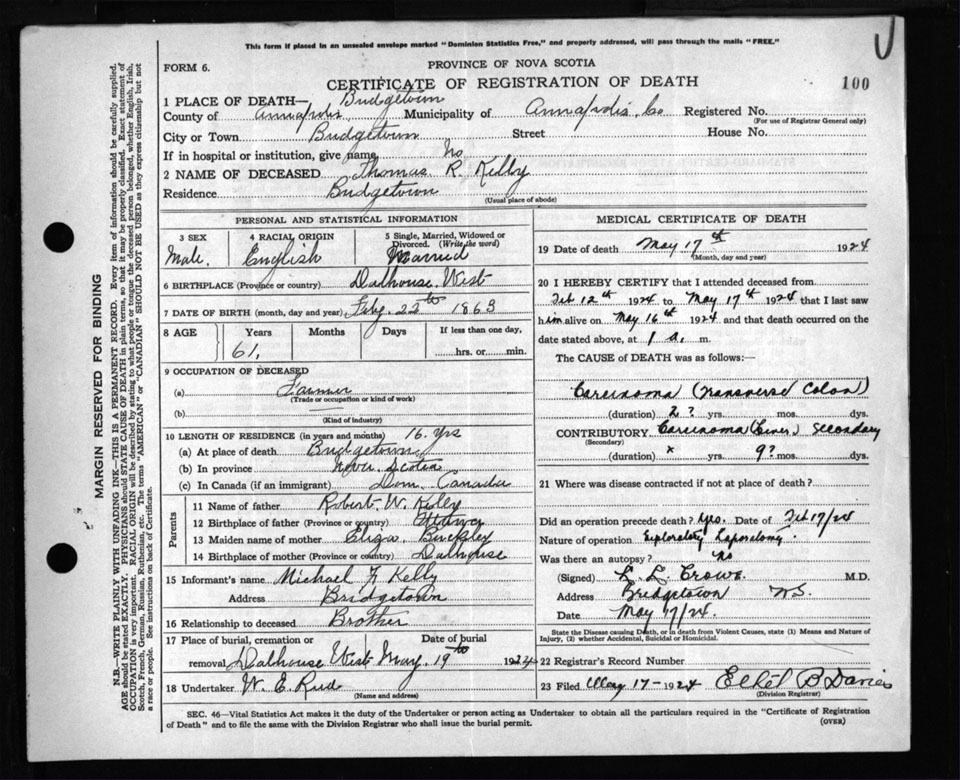 This form if placed in an unsealed envelope marked "Dominion Statistics Free," and properly addressed, will pass through the mails "FREE."
FORM 6.
PROVINCE OF NOVA SCOTIA
CERTIFICATE OF REGISTRATION OF DEATH
100
1 PLACE OF DEATH— Bridgetown
County of Annapolis Municipality of Annapolis Co Registered No.
(For use of Registrar General only)
City or Town Bridgetown Street House No.
If in hospital or institution, give name No
2 NAME OF DECEASED Thomas R. Kelly
Residence Bridgetown
(Usual place of abode)
PERSONAL AND STATISTICAL INFORMATION
3 SEX 4 RACIAL ORIGIN 5 Single, Married, Widowed or Divorced. (Write the word)
Male. English Married
6 BIRTHPLACE (Province or country) Dalhouse West
7 DATE OF BIRTH (month, day and year) Feby. 22 1863
8 AGE Years Months Days If less than one day,
61, hrs. or min.
9 OCCUPATION OF DECEASED
(a) Farmer
(Trade or occupation or kind of work)
(b)
(Kind of industry)
10 LENGTH OF RESIDENCE (in years and months) 16. yrs
(a) At place of death Bridgetown
(b) In province Nova Scotia
(c) In Canada (if an immigrant) Dom. Canada
Parents
11 Name of father Robert W. Kelly
12 Birthplace of father (Province or country)
13 Maiden name of mother Eliza Buckley
14 Birthplace of mother (Province or country) Dalhouse
15 Informant's name Michael F Kelly
Address Bridgetown
16 Relationship to deceased Brother
17 Place of burial, cremation or removal Date of burial
Dalhouse West May. 19th 1924
18 Undertaker W. E. Reed
(Name and address)
MEDICAL CERTIFICATE OF DEATH
19 Date of death May 17th 1924
(Month, day and year)
20 I HEREBY CERTIFY that I attended deceased from
Feb 12th 1924 to May 17th 1924 that I last saw
him alive on May 16th 1924 and that death occurred on the
date stated above, at 1 a. m.
The CAUSE OF DEATH was as follows:
Carcinoma (Transverse Colon)
(duration) 2? yrs. mos. dys.
CONTRIBUTORY Carcinoma (Liver) Secondary
(Secondary)
(duration) x yrs. 9? mos. dys.
21 Where was disease contracted if not at place of death?
Did an operation precede death? Yes. Date of Feb 17/24
Nature of operation Exploratory Laporatomy.
Was there an autopsy? No
(Signed) L. L. Crowe M.D.
Address Bridgetown N.S.
Date May 17/24.
State the Disease causing Death, or in death from Violent Causes, state (1) Means and Nature of
Injury, (2) whether Accidental, Suicidal or Homicidal.
22 Registrar's Record Number
23 Filed May 17- 1924 Ethel B Davies
(Division Registrar)
SEC. 46—Vital Statistics Act makes it the duty of the Undertaker or person acting as Undertaker to obtain all the particulars required in the "Certificate of Registration
of Death" and to file the same with the Division Registrar who shall issue the burial permit.
(OVER)
MARGIN RESERVED FOR BINDING
N.B.—WRITE PLAINLY WITH UNFADING INK—THIS IS A PERMANENT RECORD. Every item of information should be carefully supplied.
AGE should be stated EXACTLY. PHYSICIANS should STATE CAUSE OF DEATH in plain terms, so that it may be properly classified. Exact statement of
OCCUPATION is very important. RACIAL ORIGIN will be described by stating to what people or tongue the deceased person belonged, whether English, Irish,
Scotch, French, German, Russian, Ruthenian, etc. The terms "AMERICAN" or "CANADIAN" SHOULD NOT BE USED as they express citizenship but not
a race or people. See instructions on back of Certificate.